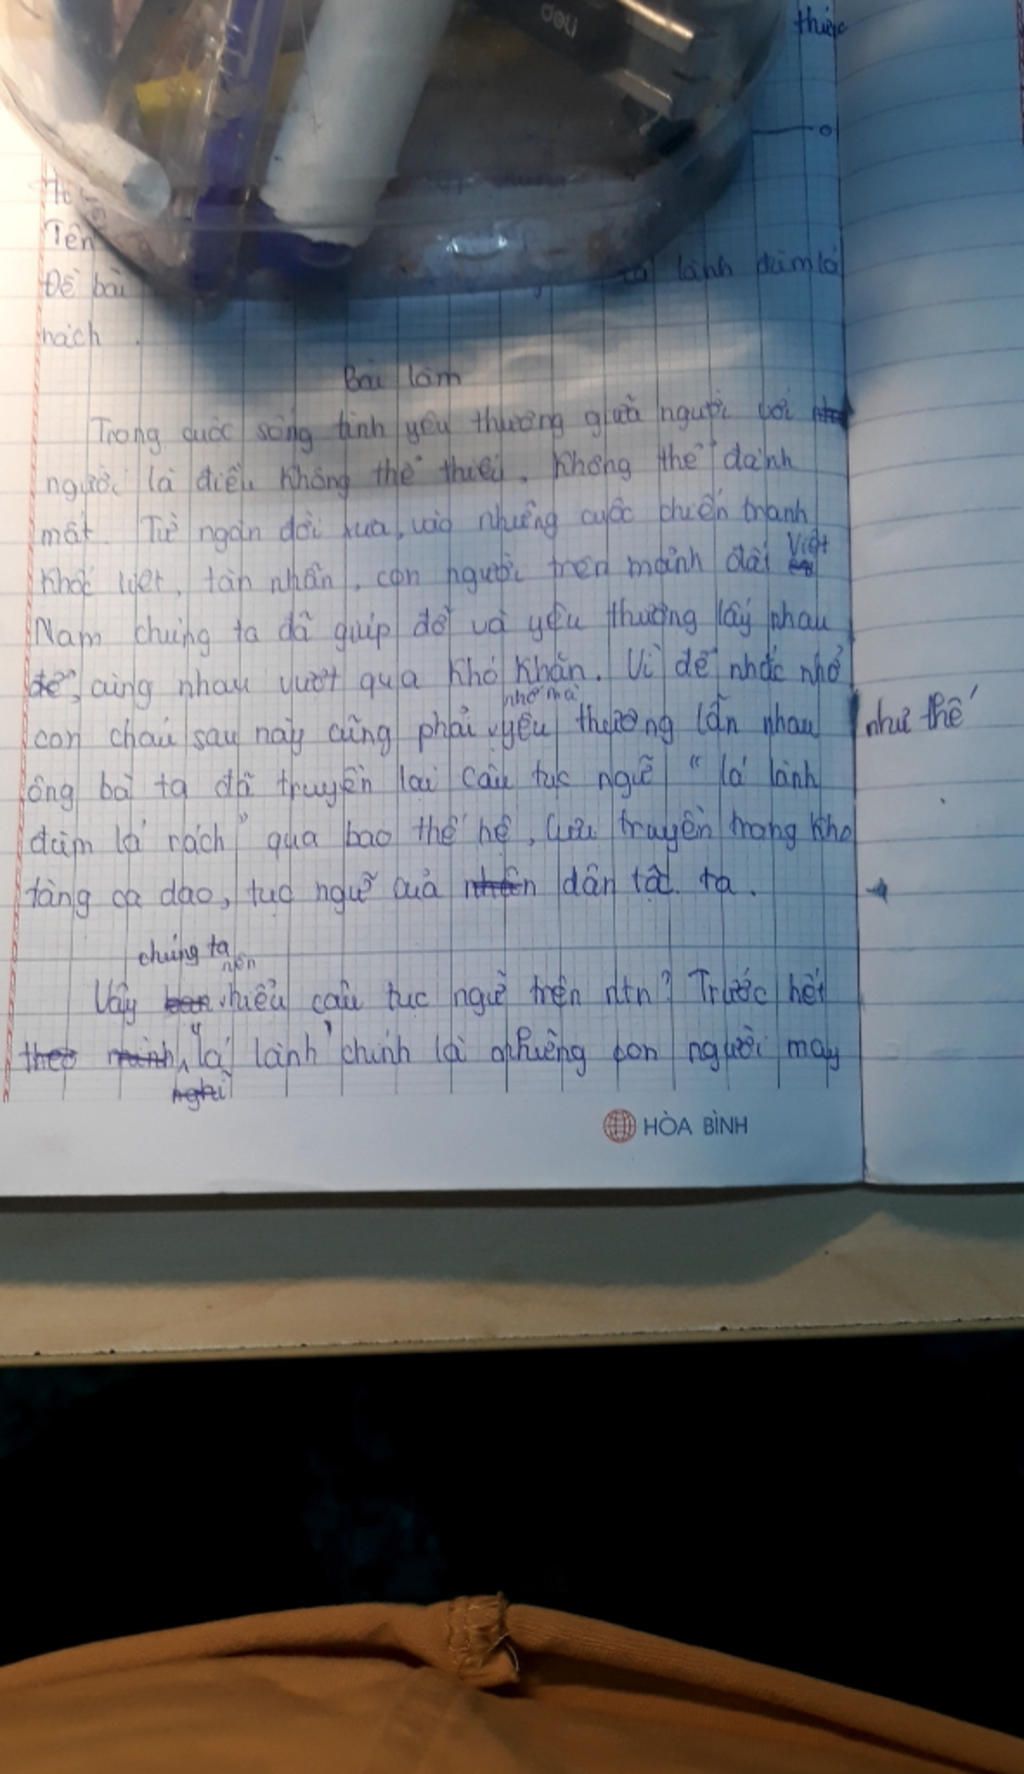 thức
Tên
Đề bài lành đùm lá
rách.
Bài làm
Trong cuộc sống tình yêu thương giữa người với
người là điều không thể thiếu. Không thể đánh
mất. Từ ngàn đời xưa, vào những cuộc chiến tranh
khốc liệt, tàn nhẫn, con người trên mảnh đất Việt
Nam chúng ta đã giúp đỡ và yêu thương lấy nhau
để cùng nhau vượt qua khó khăn. Vì để nhắc nhở
con cháu sau này cũng phải nhớ mà yêu thương lẫn nhau như thế
ông bà ta đã truyền lại câu tục ngữ "lá lành
đùm lá rách" qua bao thế hệ, lưu truyền trong kho
tàng ca dao, tục ngữ của dân tật ta.
Vậy chúng ta nên hiểu câu tục ngữ trên ntn? Trước hết
"lá lành" chính là những con người may
HÒA BÌNH